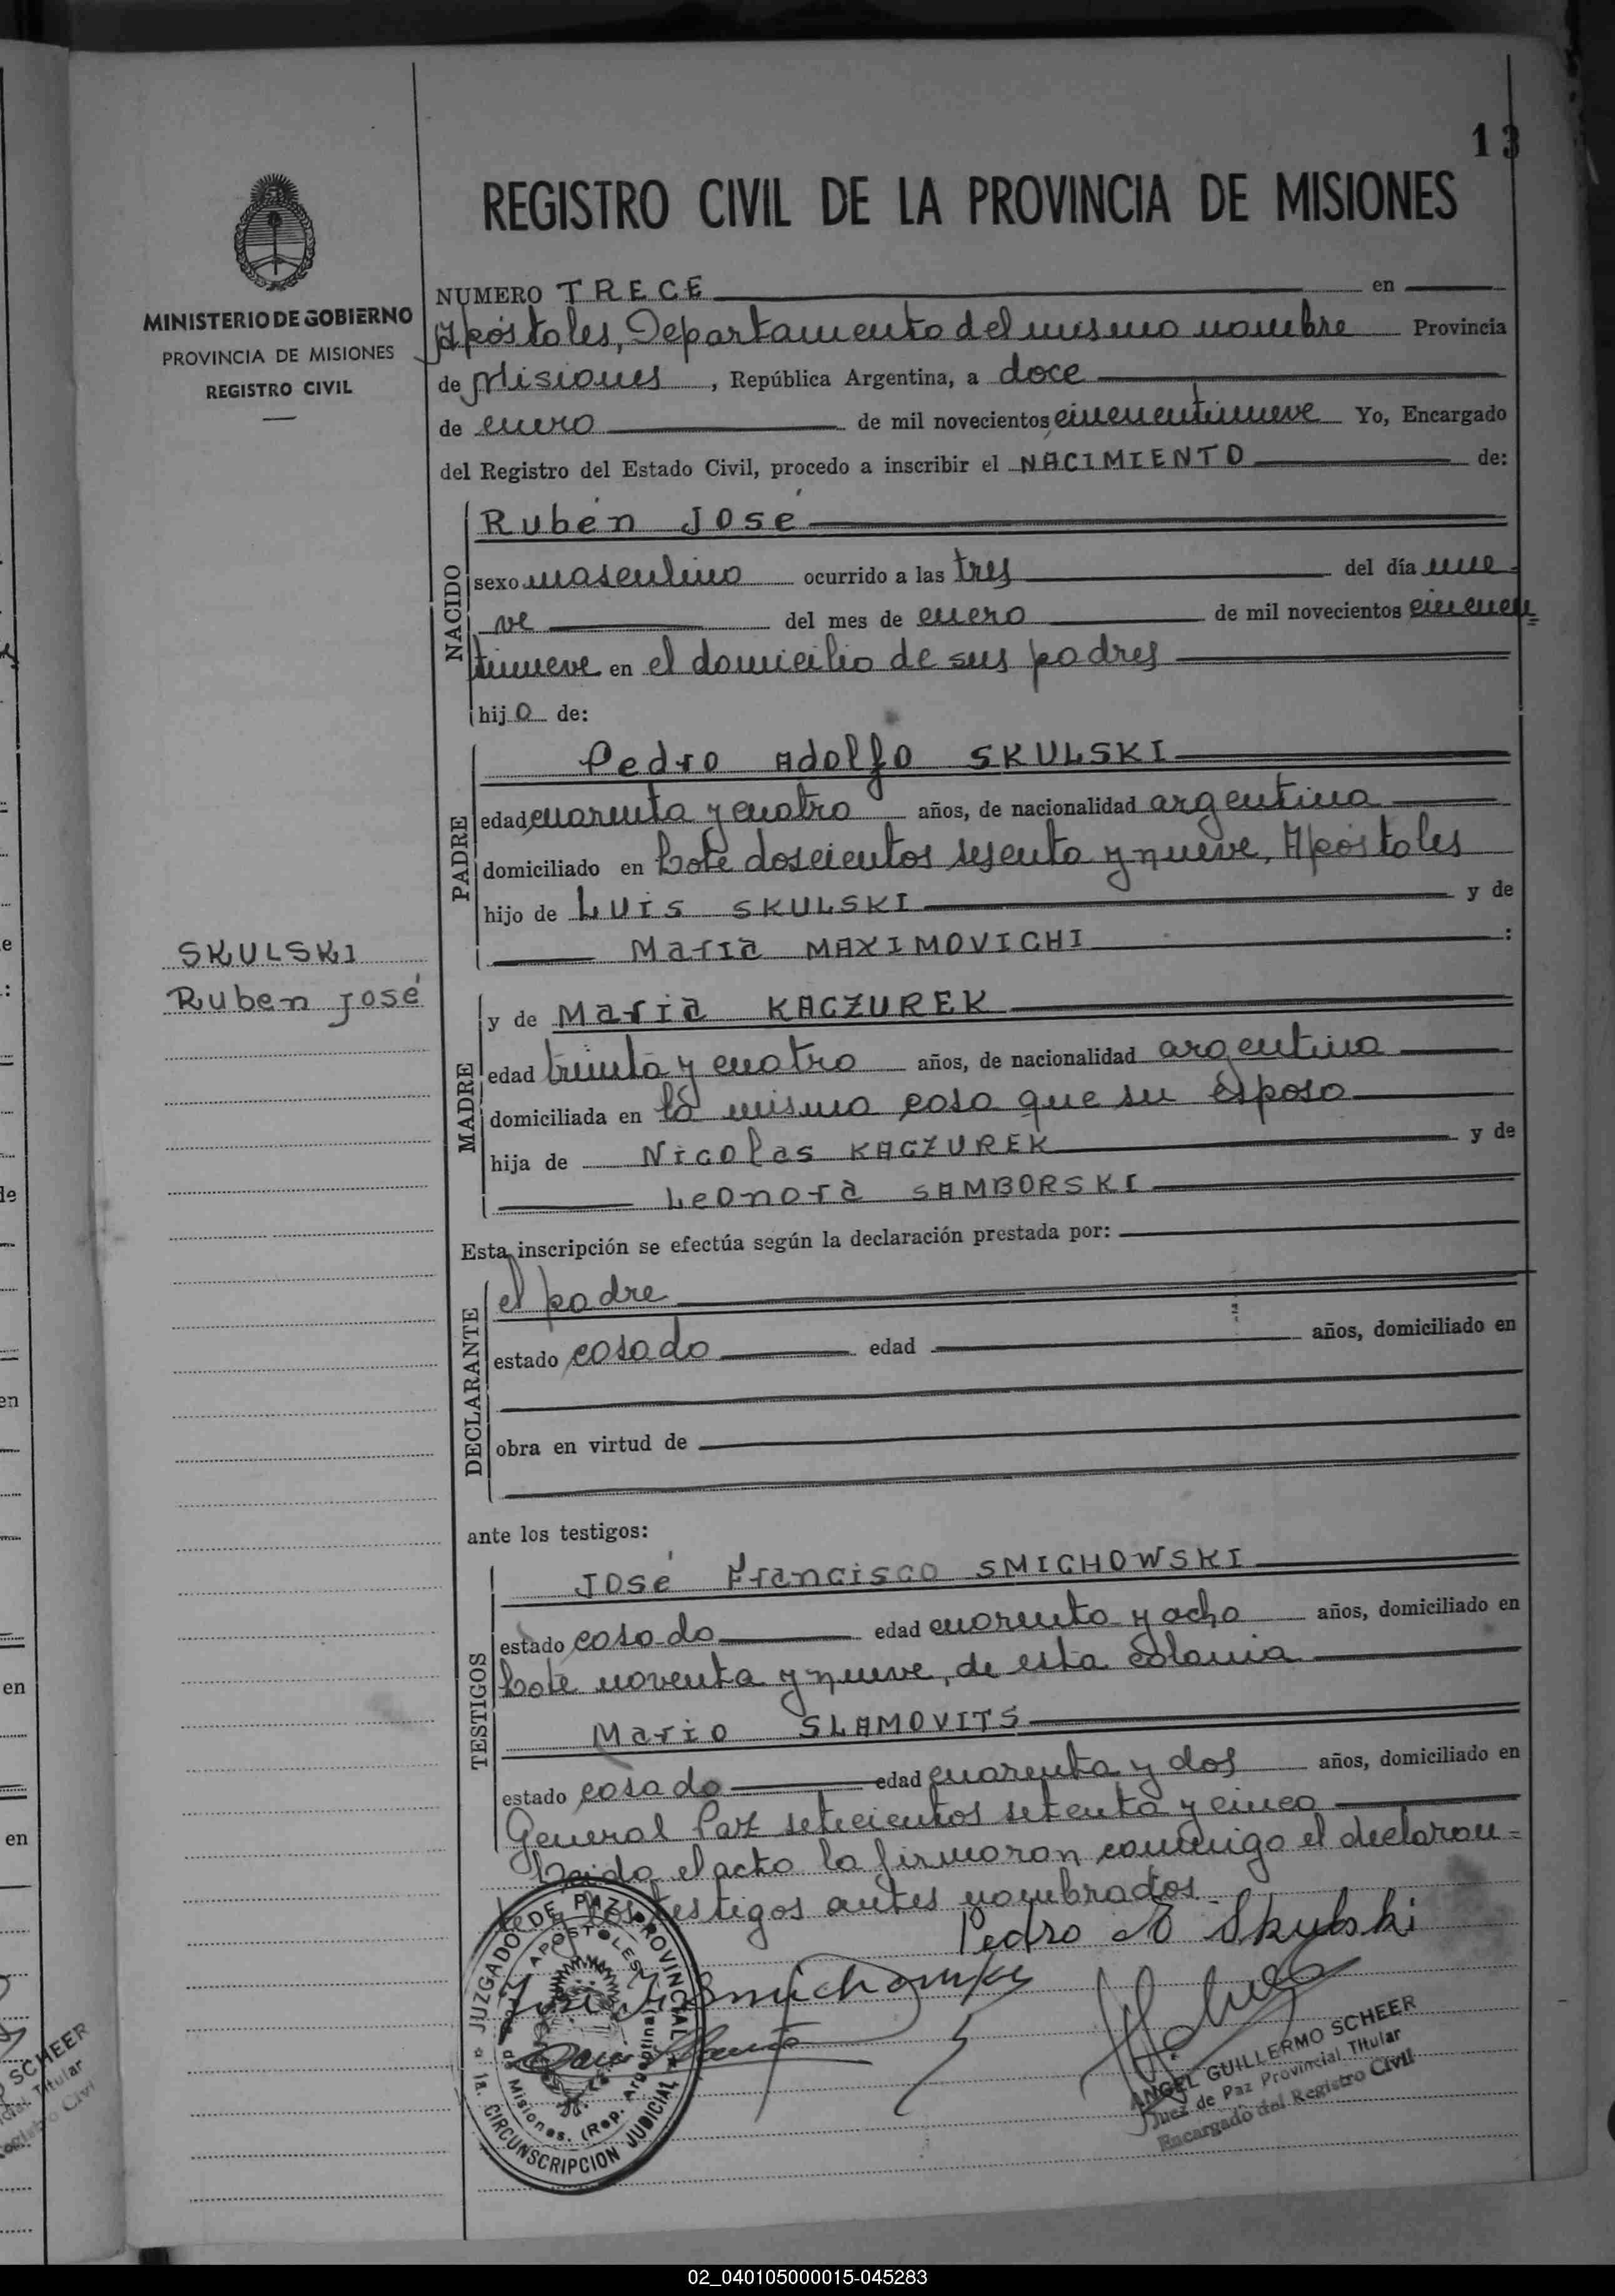 13
REGISTRO CIVIL DE LA PROVINCIA DE MISIONES
MINISTERIO DE GOBIERNO
PROVINCIA DE MISIONES
REGISTRO CIVIL
NUMERO TRECE en
Apóstoles, Departamento del mismo nombre Provincia
de Misiones, República Argentina, a doce
de enero de mil novecientos cincuentinueve Yo, Encargado
del Registro del Estado Civil, procedo a inscribir el NACIMIENTO de:
NACIDO
Rubén José
sexo masculino ocurrido a las tres del día nue-
ve del mes de enero de mil novecientos cincuen=
tinueve en el domicilio de sus padres
hijo de:
PADRE
Pedro Adolfo SKULSKI
edad cuarenta y cuatro años, de nacionalidad argentina
domiciliado en Lote doscientos sesenta y nueve, Apóstoles
hijo de LUIS SKULSKI y de
María MAXIMOVICHI :
SKULSKI
Ruben José
MADRE
y de María KACZUREK
edad treinta y cuatro años, de nacionalidad argentina
domiciliada en la misma casa que su esposo
hija de Nicolas KACZUREK y de
Leonora SAMBORSKI
Esta inscripción se efectúa según la declaración prestada por:
DECLARANTE
el padre
estado casado edad años, domiciliado en
obra en virtud de
ante los testigos:
TESTIGOS
José Francisco SMICHOWSKI
estado casado edad cuarenta y ocho años, domiciliado en
Lote noventa y nueve, de esta colonia
Mario SLAMOVITS
estado casado edad cuarenta y dos años, domiciliado en
General Paz setecientos setenta y cinco
Leida el acta la firmaron conmigo el declaran=
te y los testigos antes nombrados.-
Pedro A Skulski
JUZGADO DE PAZ PROVINCIAL
APOSTOLES
Misiones. (Rep. Argentina)
1a. CIRCUNSCRIPCION JUDICIAL
ANGEL GUILLERMO SCHEER
Juez de Paz Provincial Titular
Encargado del Registro Civil
02_040105000015-045283